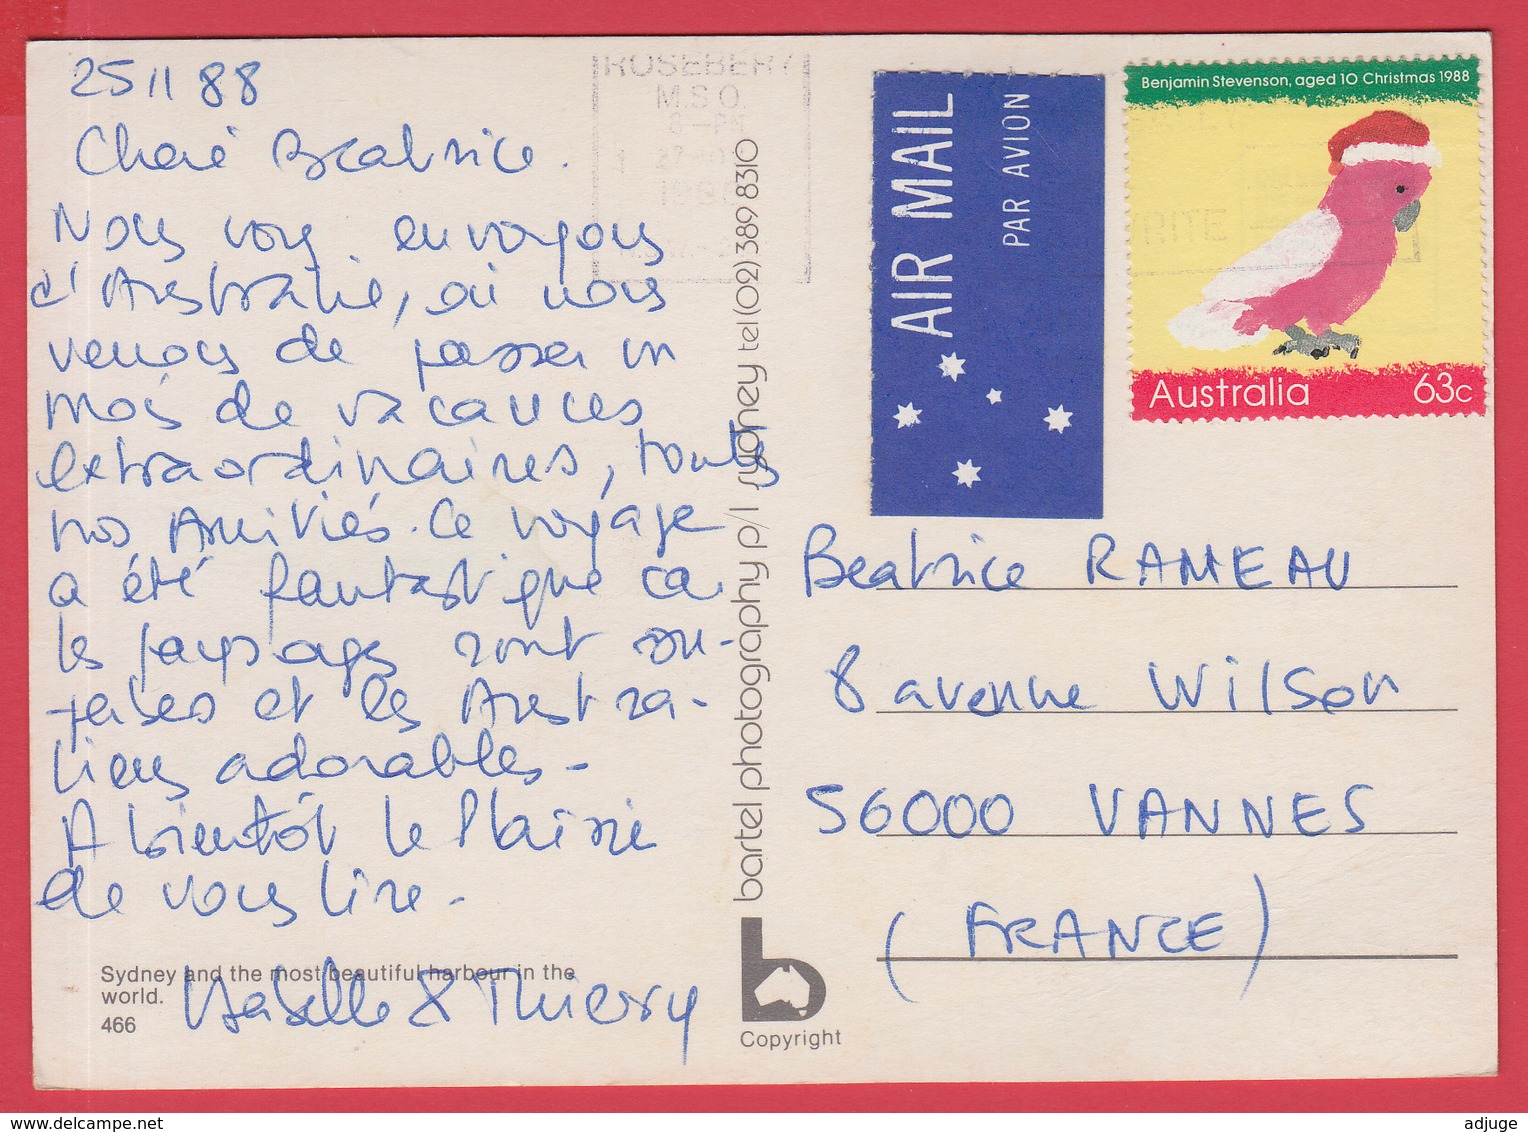 25 11 88
Cheré Beatrice.
Nous vous envoyons
d'Australie, où nous
venons de passer un
mois de vacances
extraordinaires, toutes
nos Amitiés. Ce voyage
a été fantastique ca
les paysages sont
et les Austra-
liens adorables -
A bientôt le Plaisir
de vous lire -
Isabelle & Thierry
Sydney and the most beautiful harbour in the
world.
466
ROSEBERY
M.S.O.
6-PM
bartel photography p/l sydney tel (02) 389 8310
Copyright
AIR MAIL
PAR AVION
Benjamin Stevenson, aged 10 Christmas 1988
Australia 63c
Beatrice RAMEAU
8 avenue Wilson
56000 VANNES
(FRANCE)
delcampe.net
adjuge